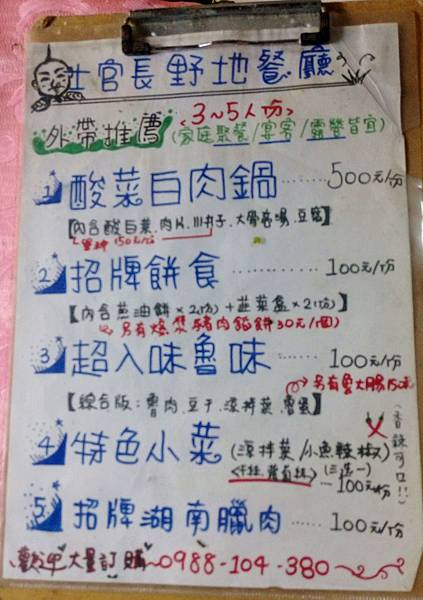 士官長野地餐廳
外帶推薦 <3~5人份>
(家庭聚餐/宴客/露營皆宜)
1 酸菜白肉鍋……500元/份
【內含酸白菜.肉片.川丸子.大骨高湯.豆腐】
單神150元/份
2 招牌餅食……100元/份
【內含蔥油餅×2(份)+韭菜盒×2(份)】
另有爆漿豬肉餡餅30元/(個)
3 超入味魯味……100元/份
另有魯大腸150元
【綜合版:魯肉.豆干.涼拌菜.魯蛋】
4 特色小菜(涼拌菜/小魚辣椒)
(香辣可口!!)
<干絲.蘿蔔絲>(三選一)
100元/份
5 招牌湖南臘肉……100元/份
歡迎大量訂購~0988-104-380~